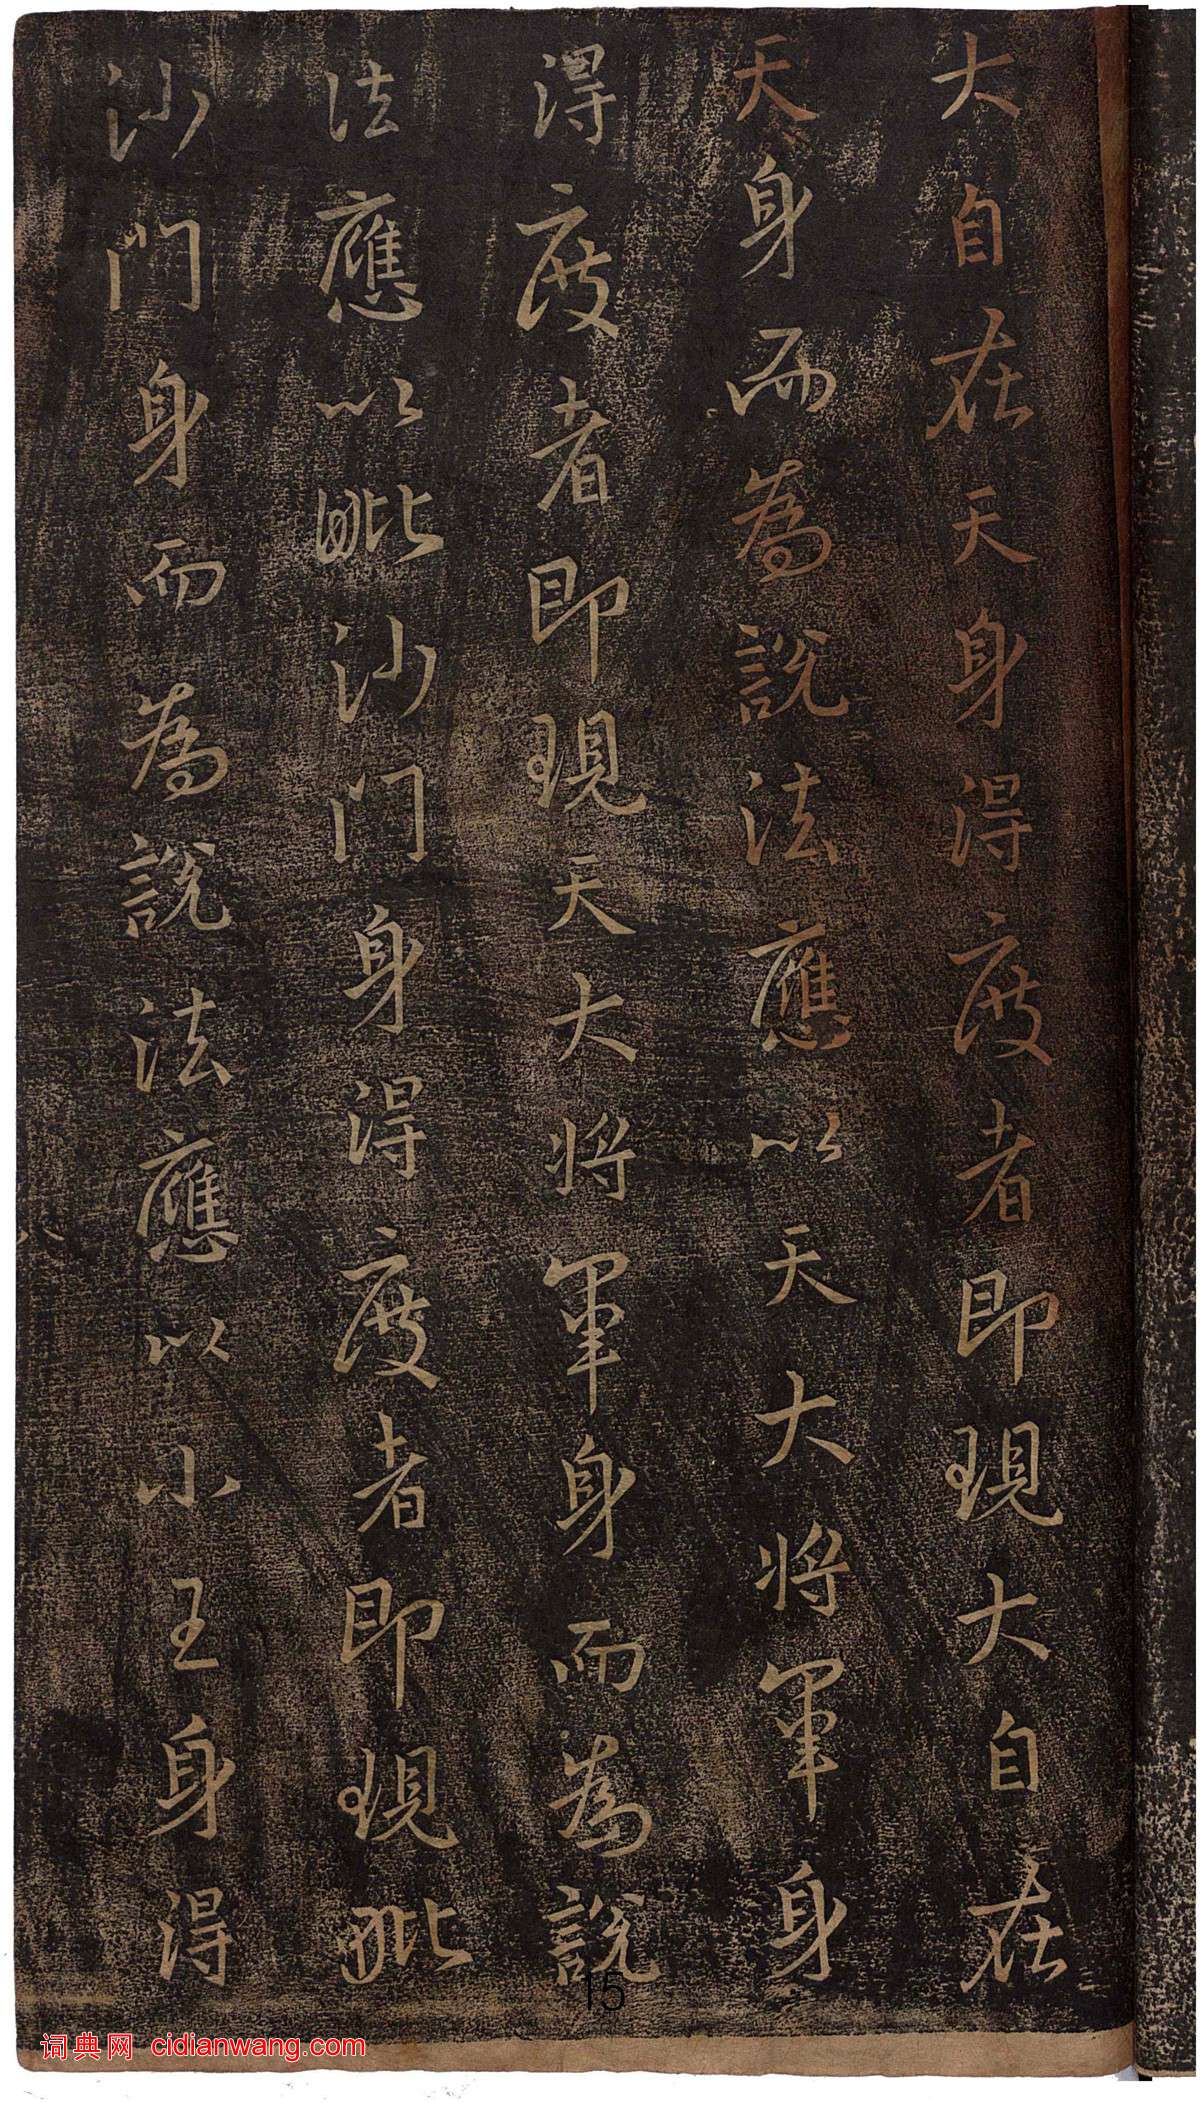 大自在天身得度者即現大自在
天身而為說法應以天大將軍身
得度者即現天大將軍身而為說
法應以毗沙門身得度者即現毗
沙門身而為說法應以小王身得
八
15
词典网 cidianwang.com